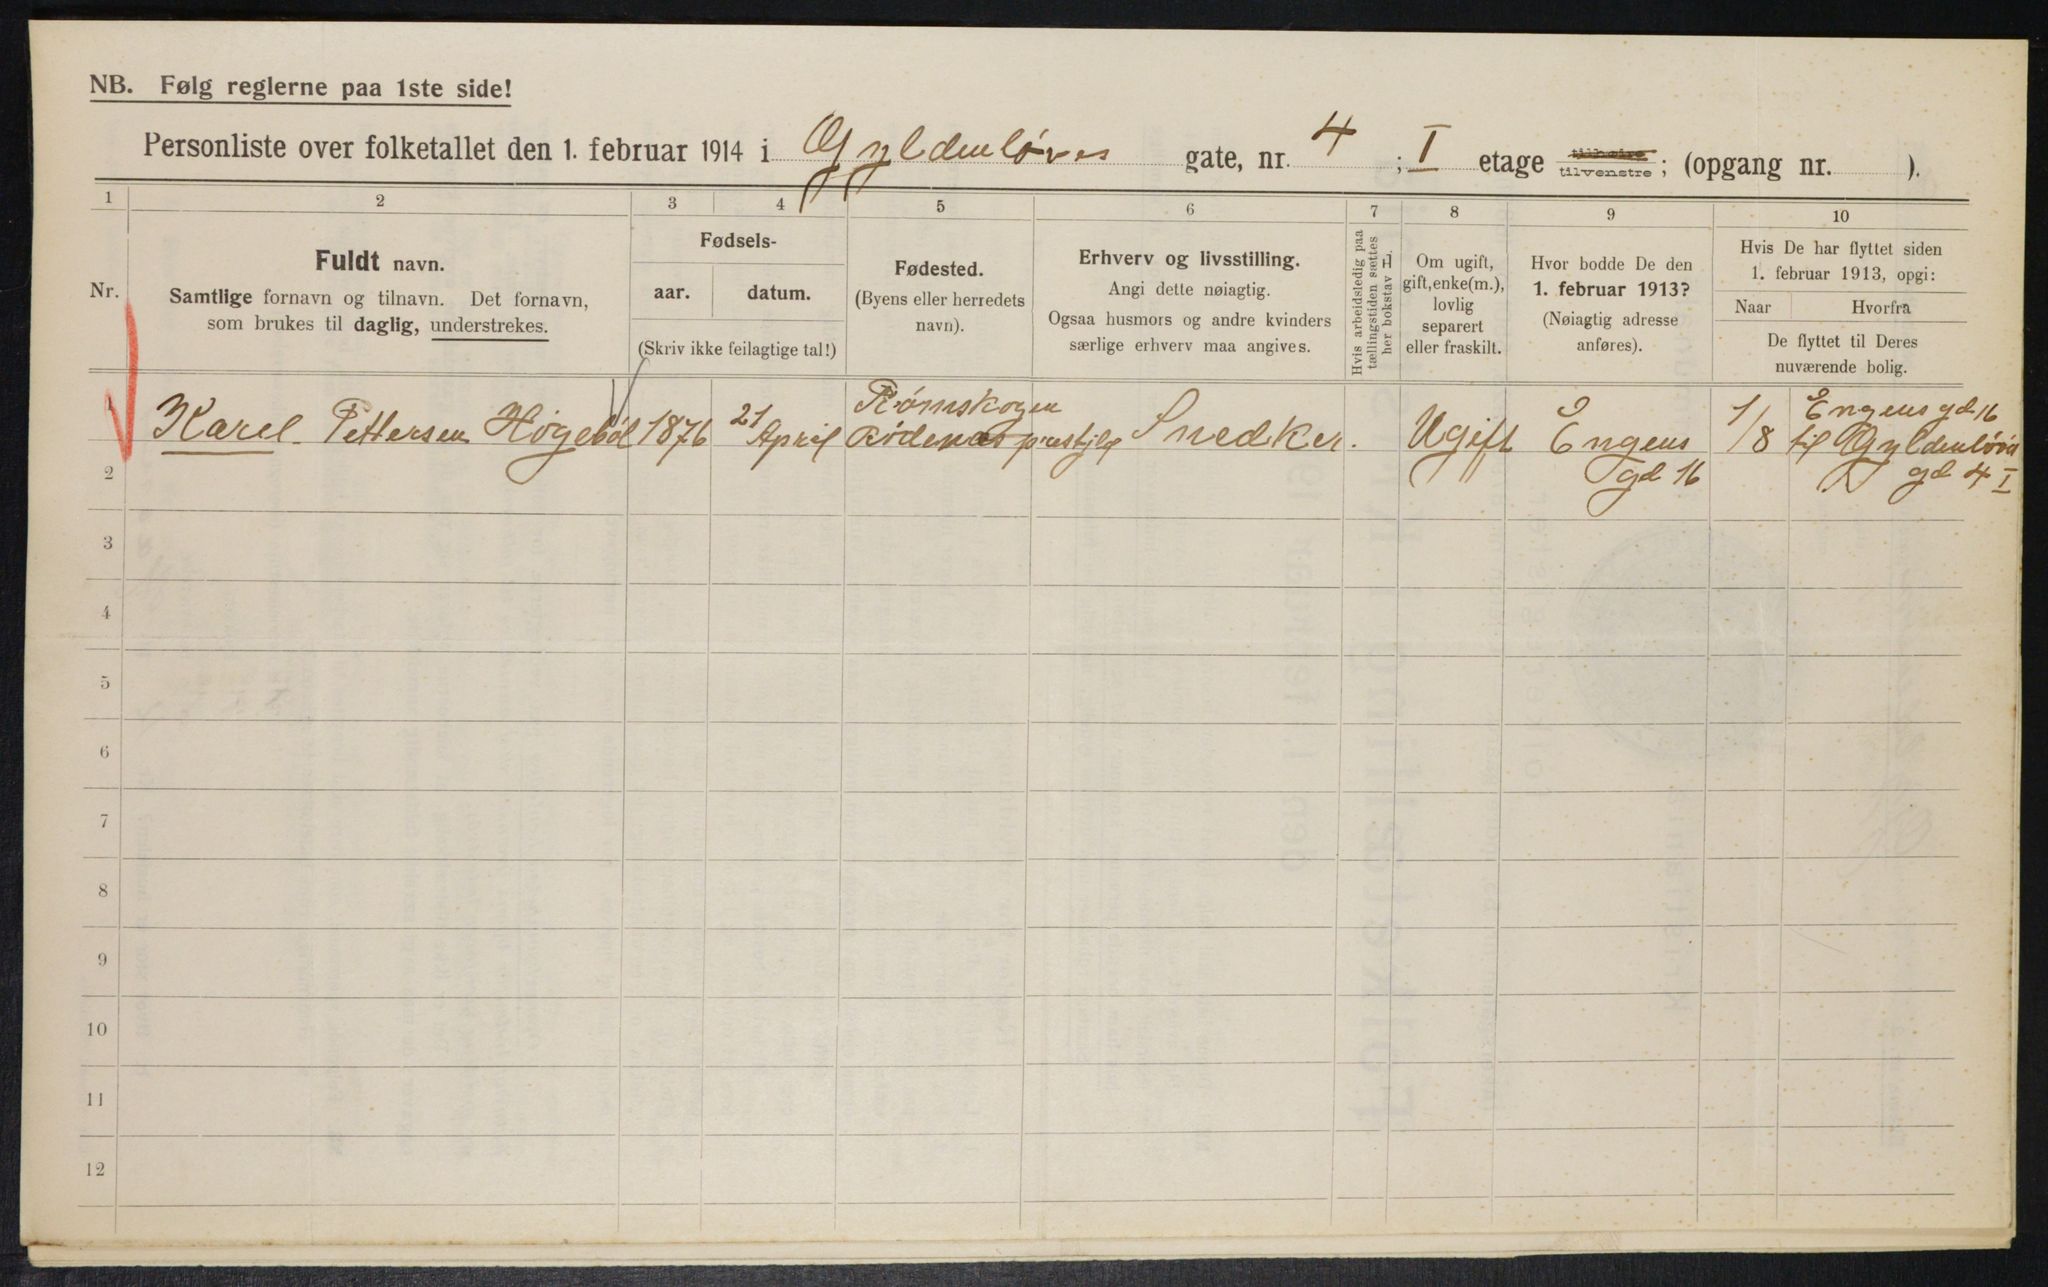 NB. Følg reglerne paa 1ste side!
Personliste over folketallet den 1. februar 1914 i Gyldenløves gate, nr. 4 ; I etage tilhøire tilvenstre ; (opgang nr. ).
1 2 3 4 5 6 7 8 9 10
Nr.
Fuldt navn.
Samtlige fornavn og tilnavn. Det fornavn,
som brukes til daglig, understrekes.
Fødsels-
aar. datum.
(Skriv ikke feilagtige tal!)
Fødested.
(Byens eller herredets
navn).
Erhverv og livsstilling.
Angi dette nøiagtig.
Ogsaa husmors og andre kvinders
særlige erhverv maa angives.
Hvis arbeidsledig paa
tællingstiden sættes
her bokstav L
Om ugift,
gift, enke(m.),
lovlig
separert
eller fraskilt.
Hvor bodde De den
1. februar 1913?
(Nøiagtig adresse
anføres).
Hvis De har flyttet siden
1. februar 1913, opgi:
Naar Hvorfra
De flyttet til Deres
nuværende bolig.
1 Karel Pettersen Høgebøl 1876 21 April
Rømskogen
Rødenæs prestjeld
Snedker.
Ugift
Engens
gd 16
1/8
Engens gd 16
til Gyldenløves
gd 4 I
2
3
4
5
6
7
8
9
10
11
12